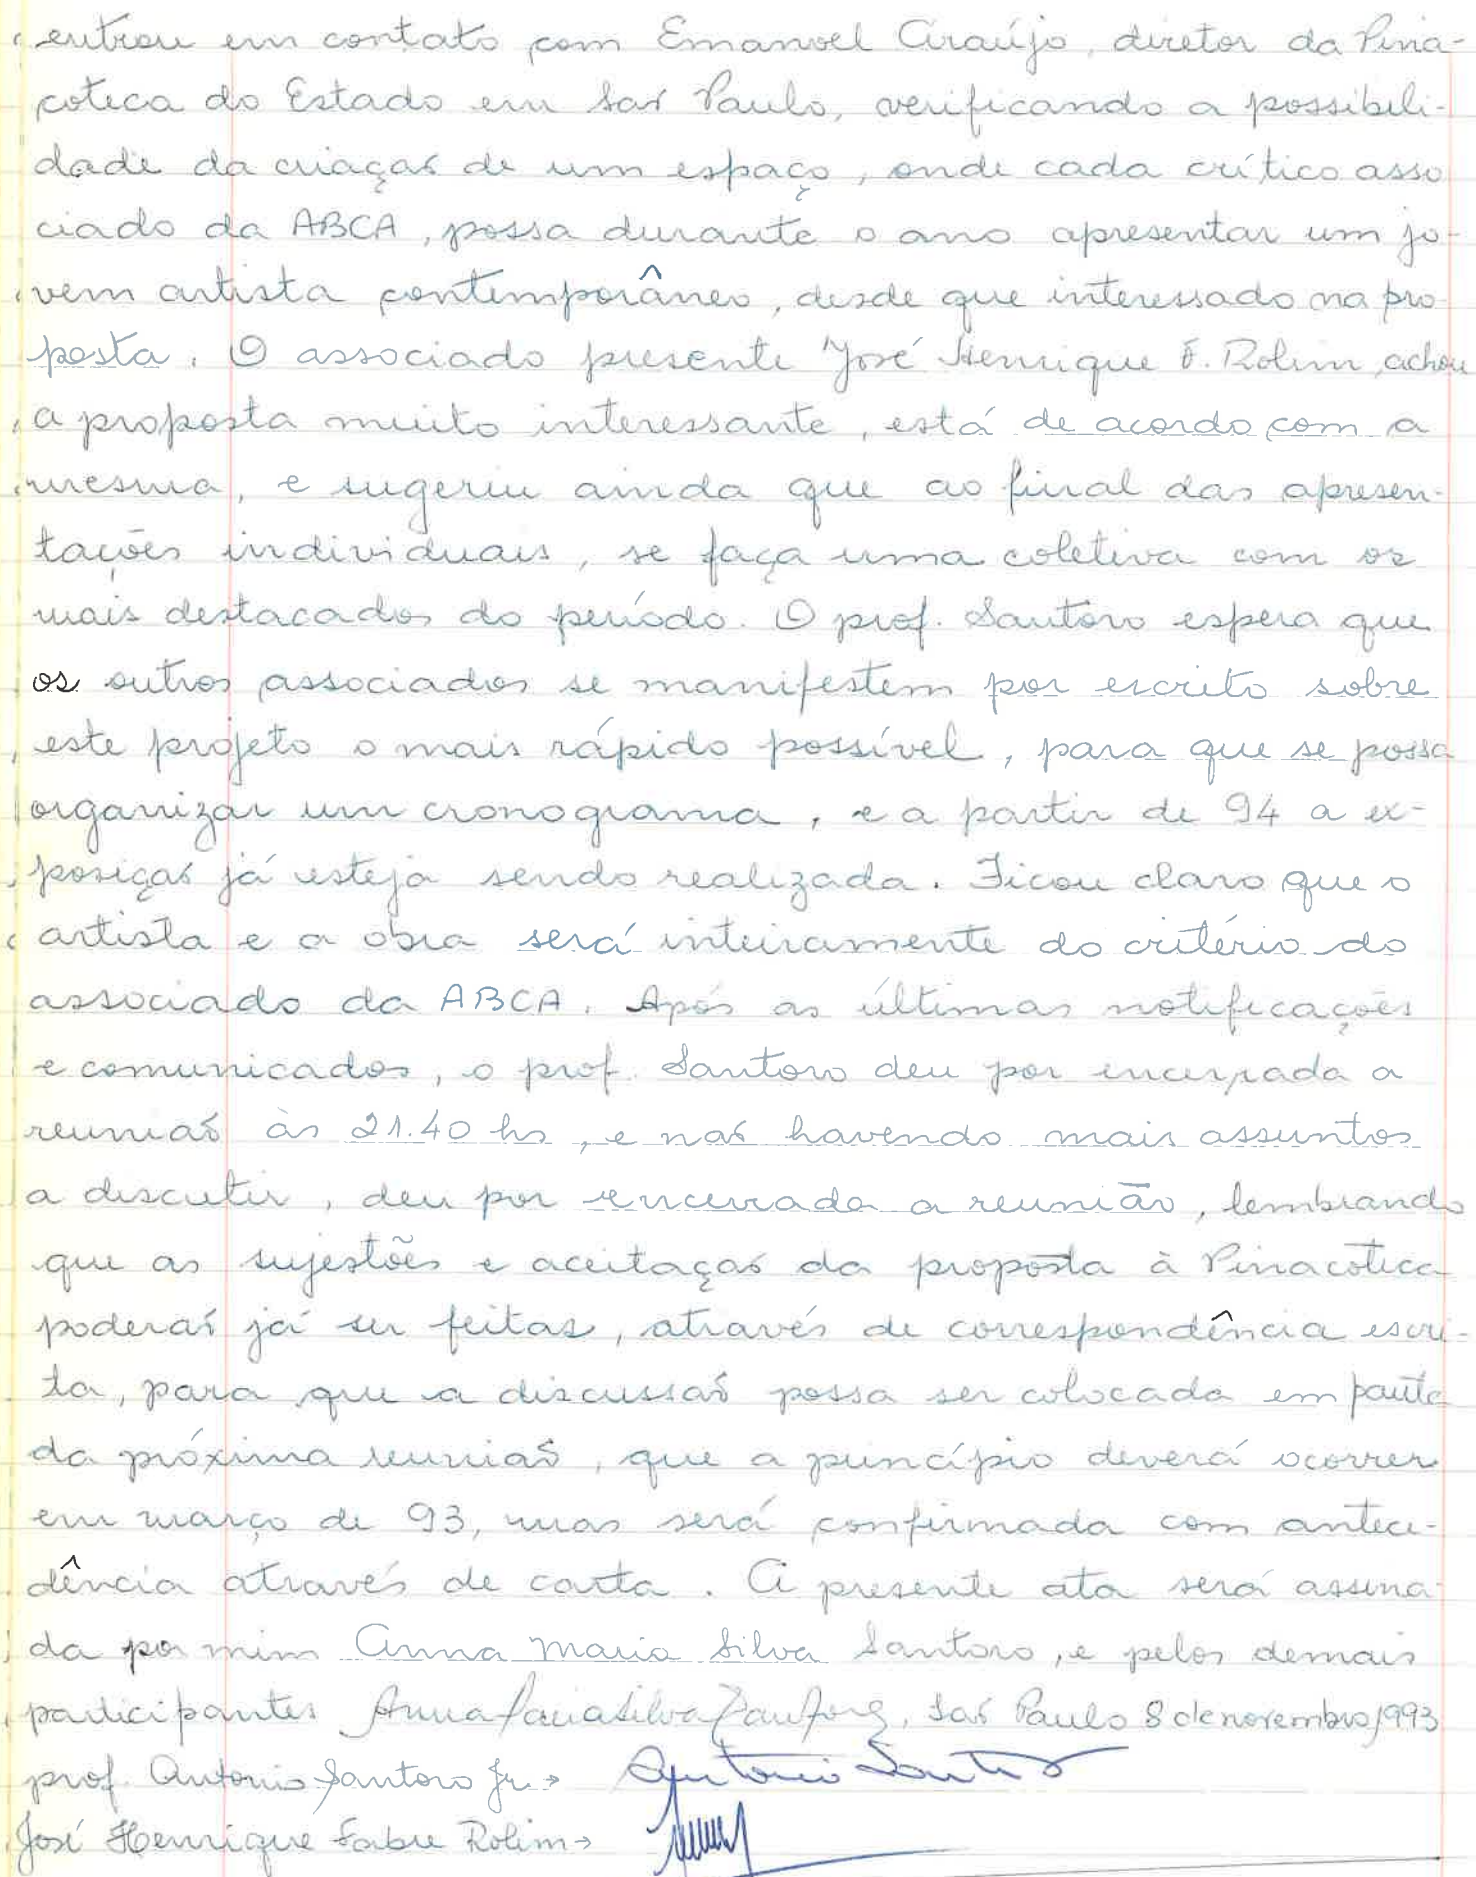 entrou em contato com Emanoel Araújo, diretor da Pina-
coteca do Estado em São Paulo, verificando a possibili-
dade da criação de um espaço, onde cada crítico asso
ciado da ABCA, possa durante o ano apresentar um jo-
vem artista contemporâneo, desde que interessado na pro-
posta. O associado presente José Henrique F. Rolim, achou
a proposta muito interessante, está de acordo com a
mesma, e sugeriu ainda que ao final das apresen-
tações individuais, se faça uma coletiva com os
mais destacados do período. O prof. Santoro espera que
os outros associados se manifestem por escrito sobre
este projeto o mais rápido possível, para que se possa
organizar um cronograma, e a partir de 94 a ex-
posição já esteja sendo realizada. Ficou claro que o
artista e a obra será inteiramente do critério do
associado da ABCA. Após as últimas notificações
e comunicados, o prof. Santoro deu por encerrada a
reunião às 21.40 hs, e não havendo mais assuntos
a discutir, deu por encerrada a reunião, lembrando
que as sujestões e aceitação da proposta à Pinacoteca
poderão já ser feitas, através de correspondência escri-
ta, para que a discussão possa ser colocada em pauta
da próxima reunião, que a princípio deverá ocorrer
em março de 93, mas será confirmada com antece-
dência através de carta. A presente ata será assina-
da por mim Anna Maria Silva Santoro, e pelos demais
participantes Anna Maria Silva Santoro, São Paulo 8 de novembro 1993
prof. Antonio Santoro Jr. → Antonio Santoro
José Henrique Fabre Rolim →